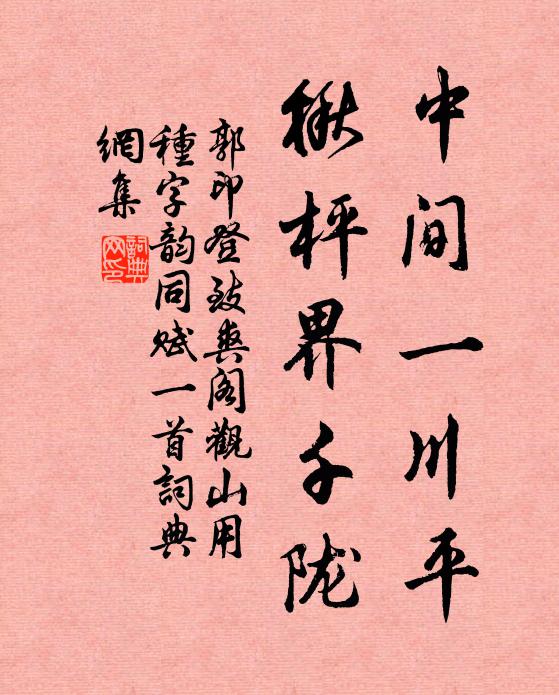 中间一川平
楸枰界千陇
郭印登致爽阁觀山用
種字韵同赋一首詞典
網集
詞典網印